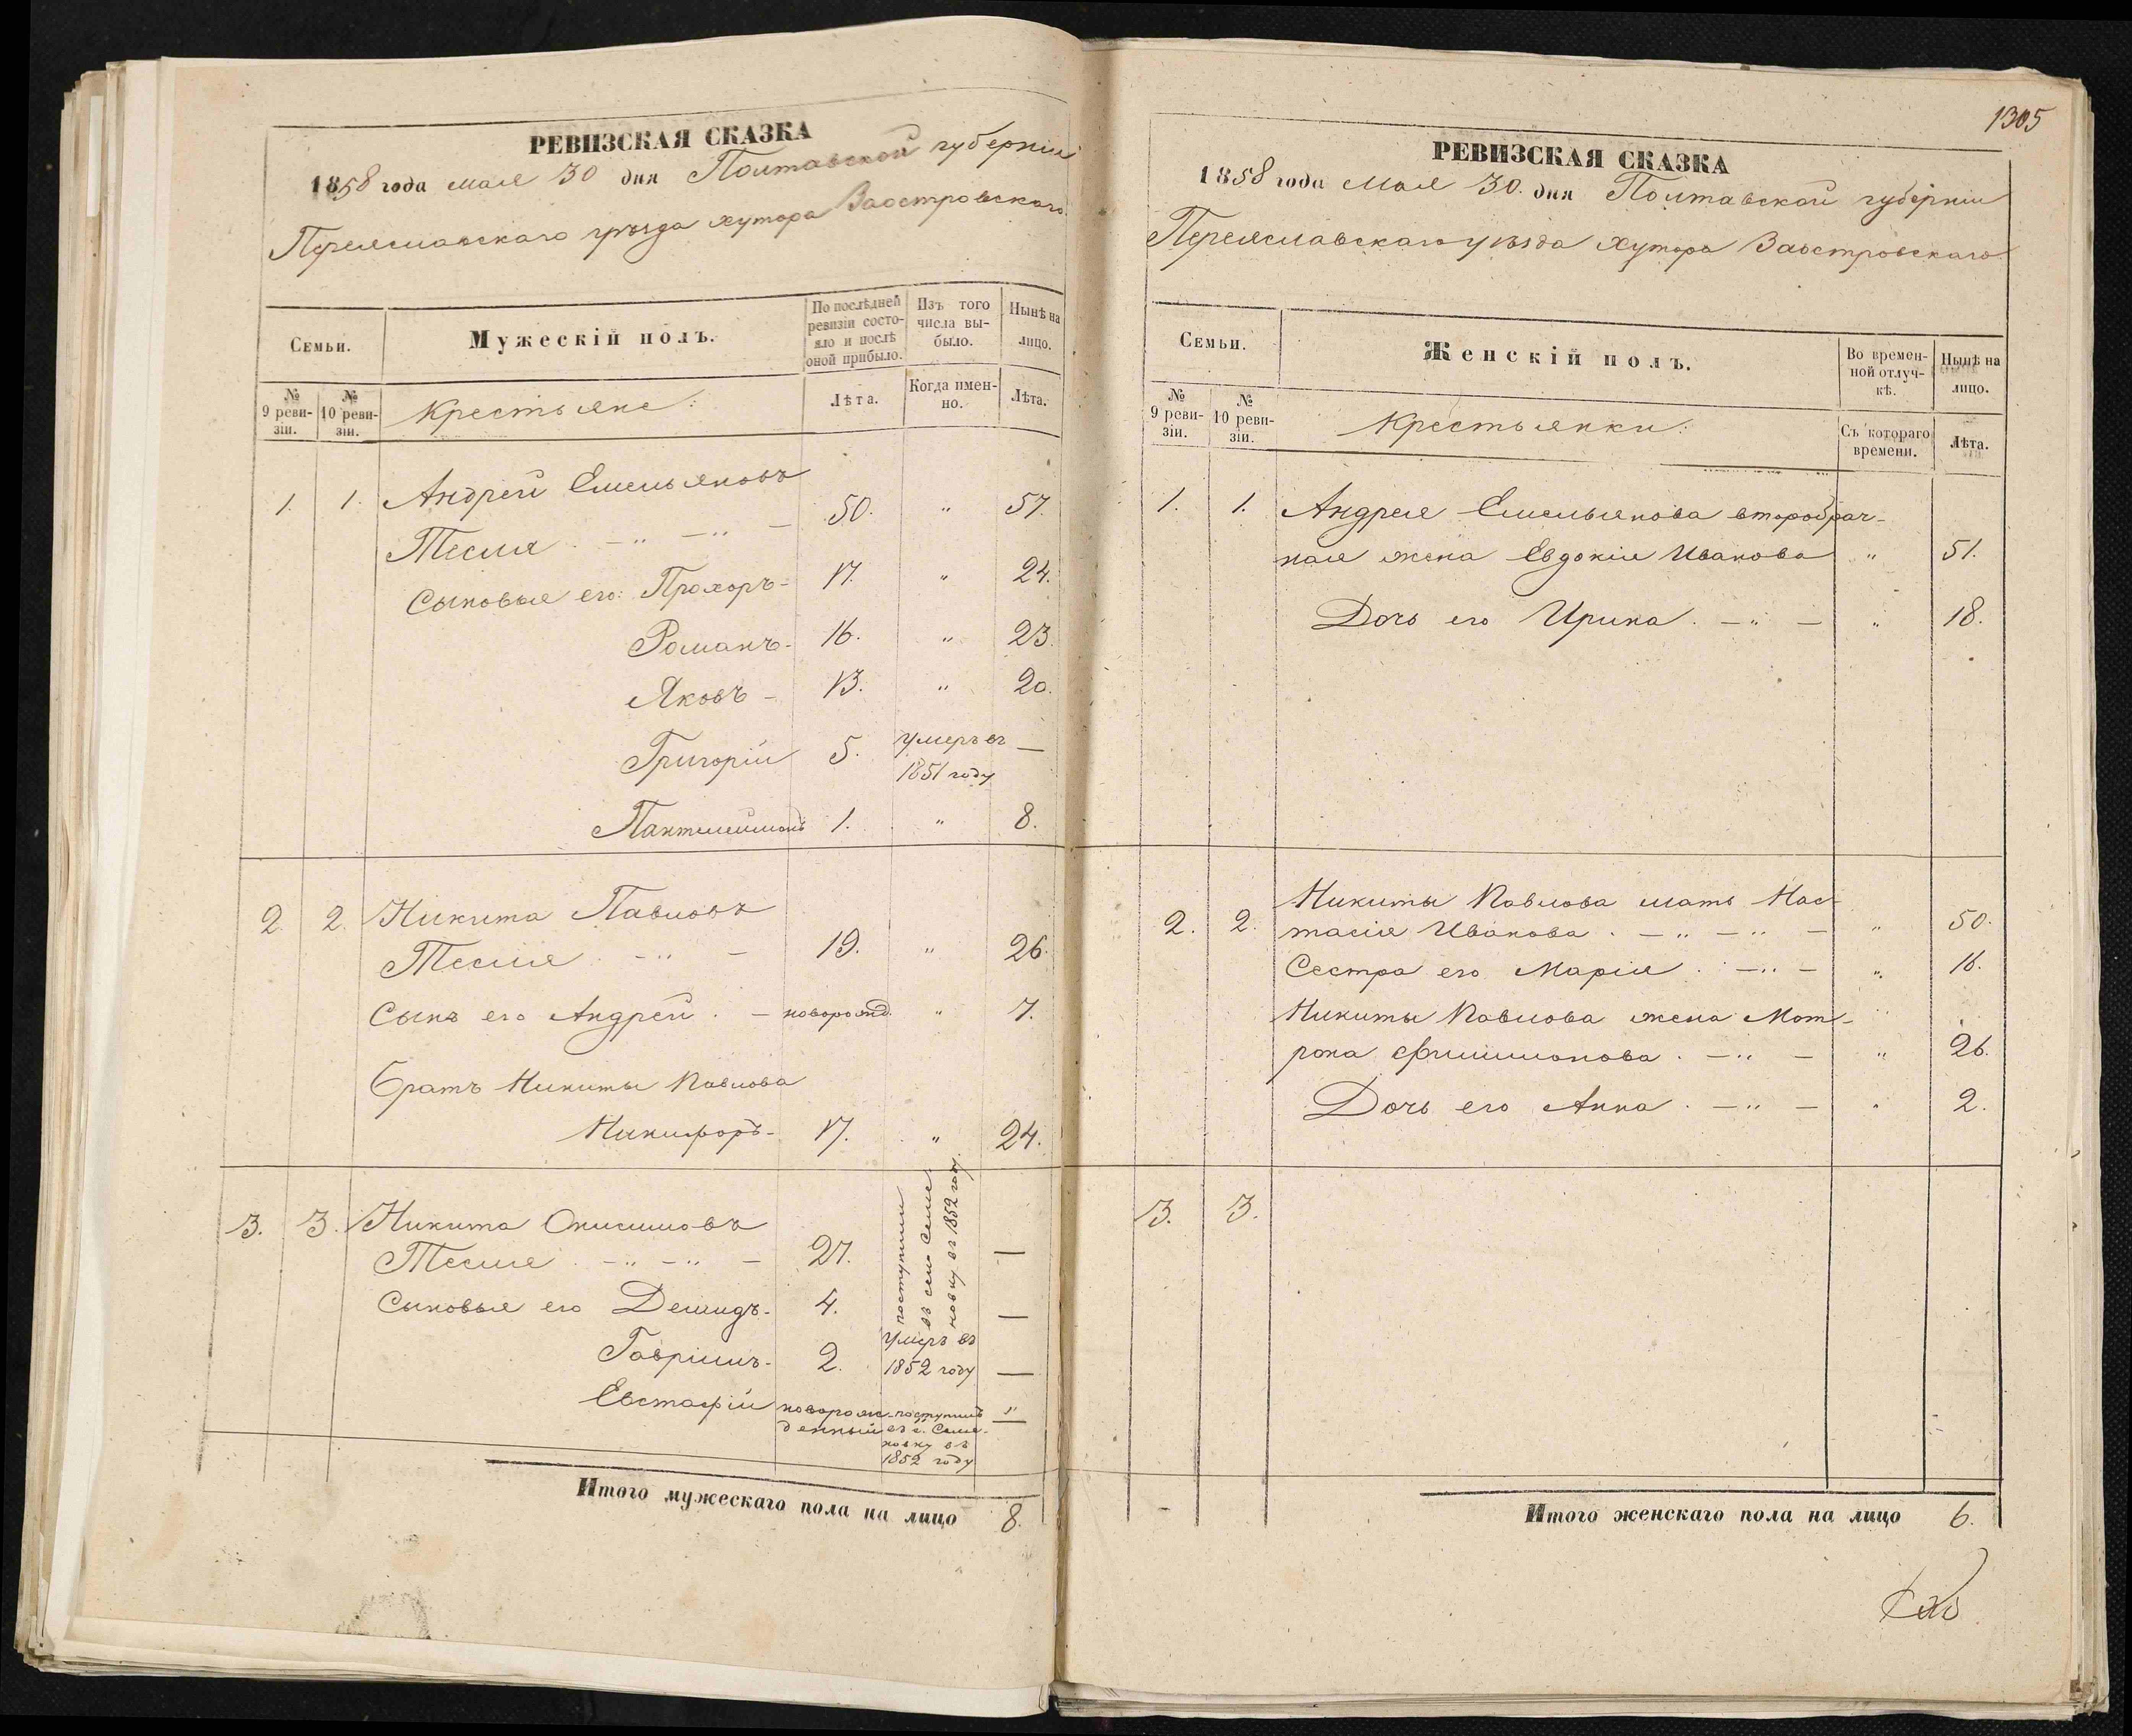 РЕВИЗСКАЯ СКАЗКА
1858 года мая 30 дня Полтавской губерніи
Переяславскаго уѣзда хутора Заостровскаго
Семьи.
Мужескій полъ.
По послѣдней ревизіи состояло и послѣ оной прибыло.
Изъ того числа выбыло.
Нынѣ на лицо.
№ 9 ревизіи.
№ 10 ревизіи.
Крестьяне:
Лѣта.
Когда именно.
Лѣта.
1. 1. Андрей Емельяновъ
Тесля . – „ – „ – 50. „ 57.
Сыновья его: Прохоръ – 17. „ 24.
Романъ – 16. „ 23.
Яковъ – 13. „ 20.
Григорій 5. умеръ въ –
1851 году
Пантелеймонъ 1. „ 8.
2. 2. Никита Павловъ
Тесля . – „ – 19. „ 26.
Сынъ его Андрей . – новорожд. „ 7.
Братъ Никиты Павлова
Никифоръ – 17. „ 24.
3. 3. Никита Онисимовъ
Тесля . – „ – „ – 27. –
поступили
въ село Семе
новку въ 1852 году.
Сыновья его Демидъ – 4. –
Гавріилъ – 2. умеръ въ –
1852 году
Евстафій новорож- поступилъ „
денный въ с. Семе-
новку въ
1852 году
Итого мужескаго пола на лицо 8.
1305
РЕВИЗСКАЯ СКАЗКА
1858 года Мая 30. дня Полтавской губерніи
Переяславскаго уѣзда хутора Заостровскаго
Семьи.
Женскій полъ.
Во временной отлучкѣ.
Нынѣ на лицо.
№ 9 ревизіи.
№ 10 ревизіи.
Крестьянки:
Съ котораго времени.
Лѣта.
1. 1. Андрея Емельянова второбрач-
ная жена Евдокія Иванова „ 51.
Дочь его Ирина . – „ – „ 18.
2. 2. Никиты Павлова мать Нас-
тасія Иванова . – „ – „ – „ 50.
Сестра его Марія . – „ – „ 16.
Никиты Павлова жена Мот-
рона Филимонова . – „ – „ 26.
Дочь его Анна . – „ – „ 2.
3. 3.
Итого женскаго пола на лицо 6.